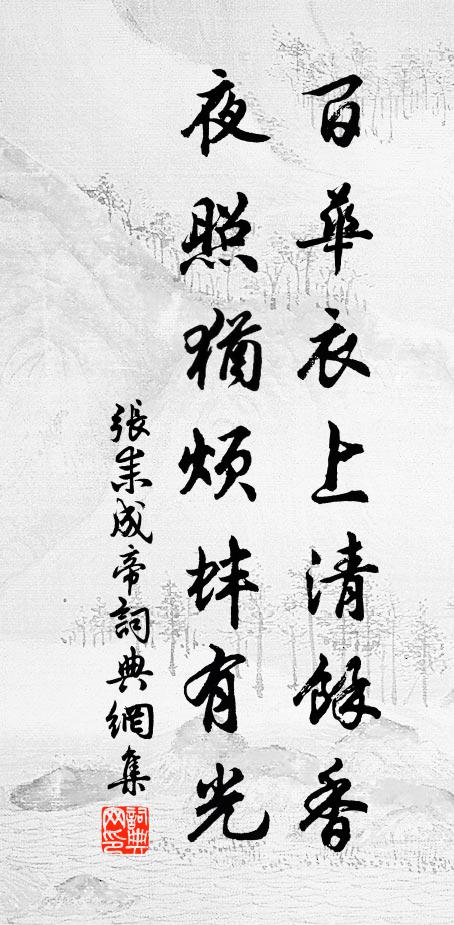 百華衣上清餘香
夜照猶煩蚌有光
張耒成帝詞典網集
詞典网印